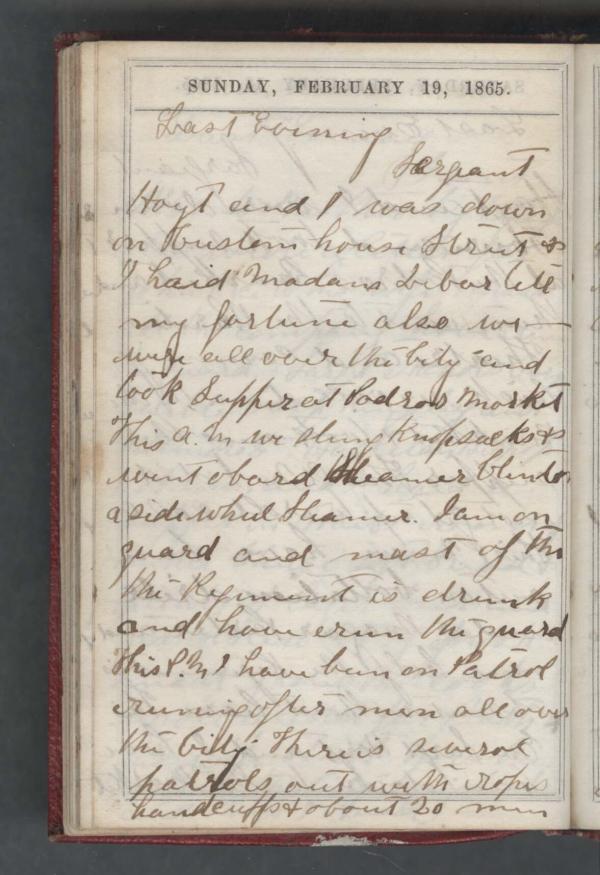 SUNDAY, FEBRUARY 19, 1865.
Last Evening
Sergeant
Hoyt and I was down
on Custom house Street &
I haid Madam Debar tell
my fortune also we
were all over the City and
took Supper at Podras Market
This A. M we slung Knapsacks &
went aboard Steamer Clinton
a side wheel Steamer. I am on
guard and mast of the
the Regiment is drunk
and have erun the guard
This P. M I have been on Patrol
runing after men all over
the City There is several
patrols out with rops
handcuffs & about 20 men